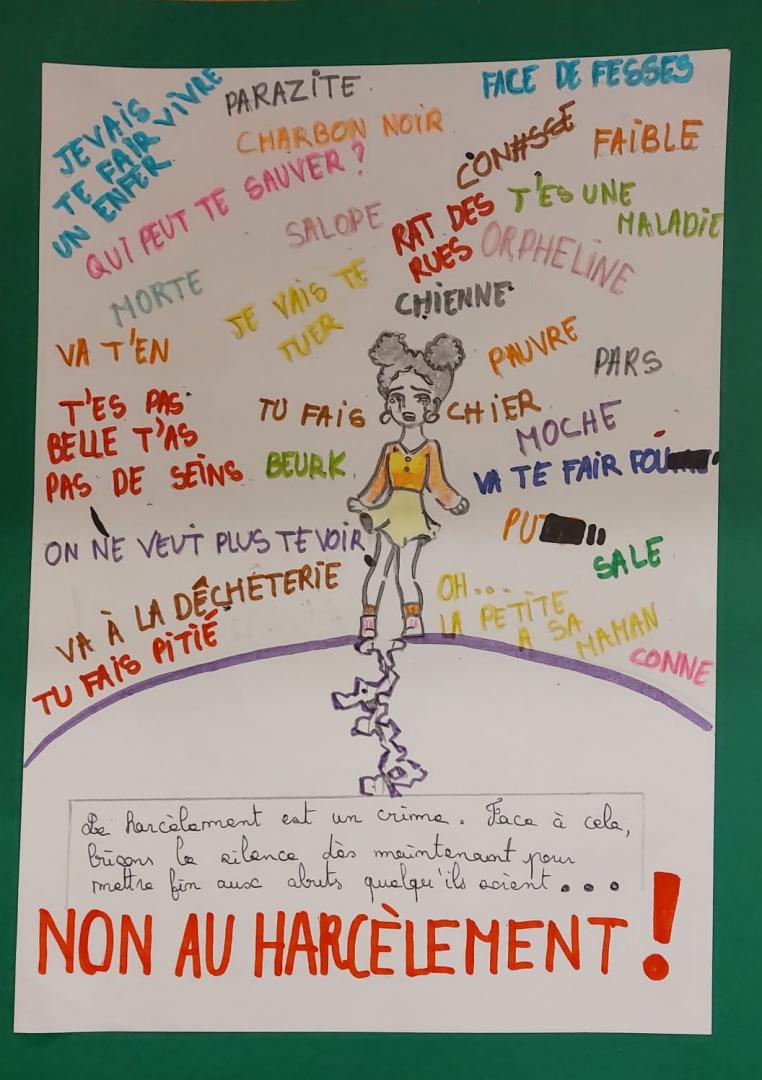 JE VAIS
TE FAIR VIVRE
UN ENFER
PARAZITE
FACE DE FESSES
CHARBON NOIR
CON#SGE
FAIBLE
QUI PEUT TE SAUVER ?
SALOPE
RAT DES
RUES
T'ES UNE
MALADIE
ORPHELINE
MORTE
JE VAIS TE
TUER
CHIENNE
VA T'EN
PAUVRE
PARS
T'ES PAS
BELLE T'AS
PAS DE SEINS
TU FAIS CHIER
MOCHE
BEURK
VA TE FAIR FOU
PU
ON NE VEUT PLUS TE VOIR
SALE
VA À LA DÊCHÉTERIE
OH...
LA PETITE
A SA
MAMAN
TU FAIS PITIÉ
CONNE
Le harcèlement est un crime. Face à cela,
brisons le silence dès maintenant pour
mettre fin aux abuts quelqu'ils soient...
NON AU HARCÈLEMENT !